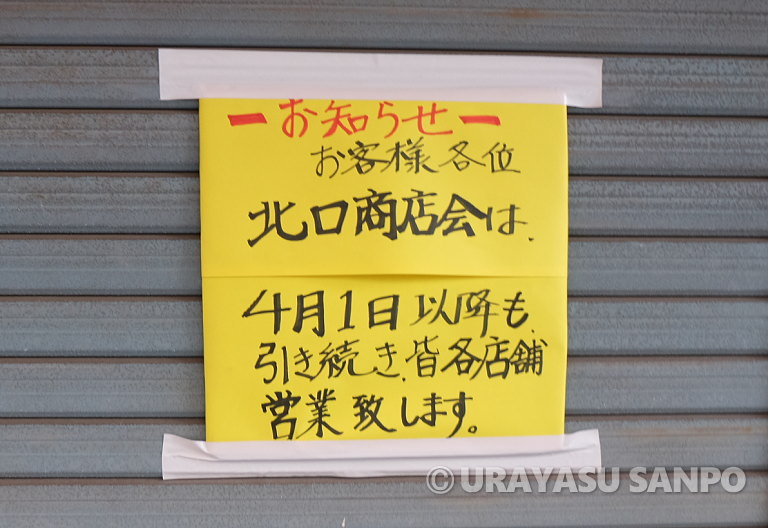 ーお知らせー
お客様各位
北口商店会は、
4月1日以降も、
引き続き、皆各店舗
営業致します。
© URAYASU SANPO